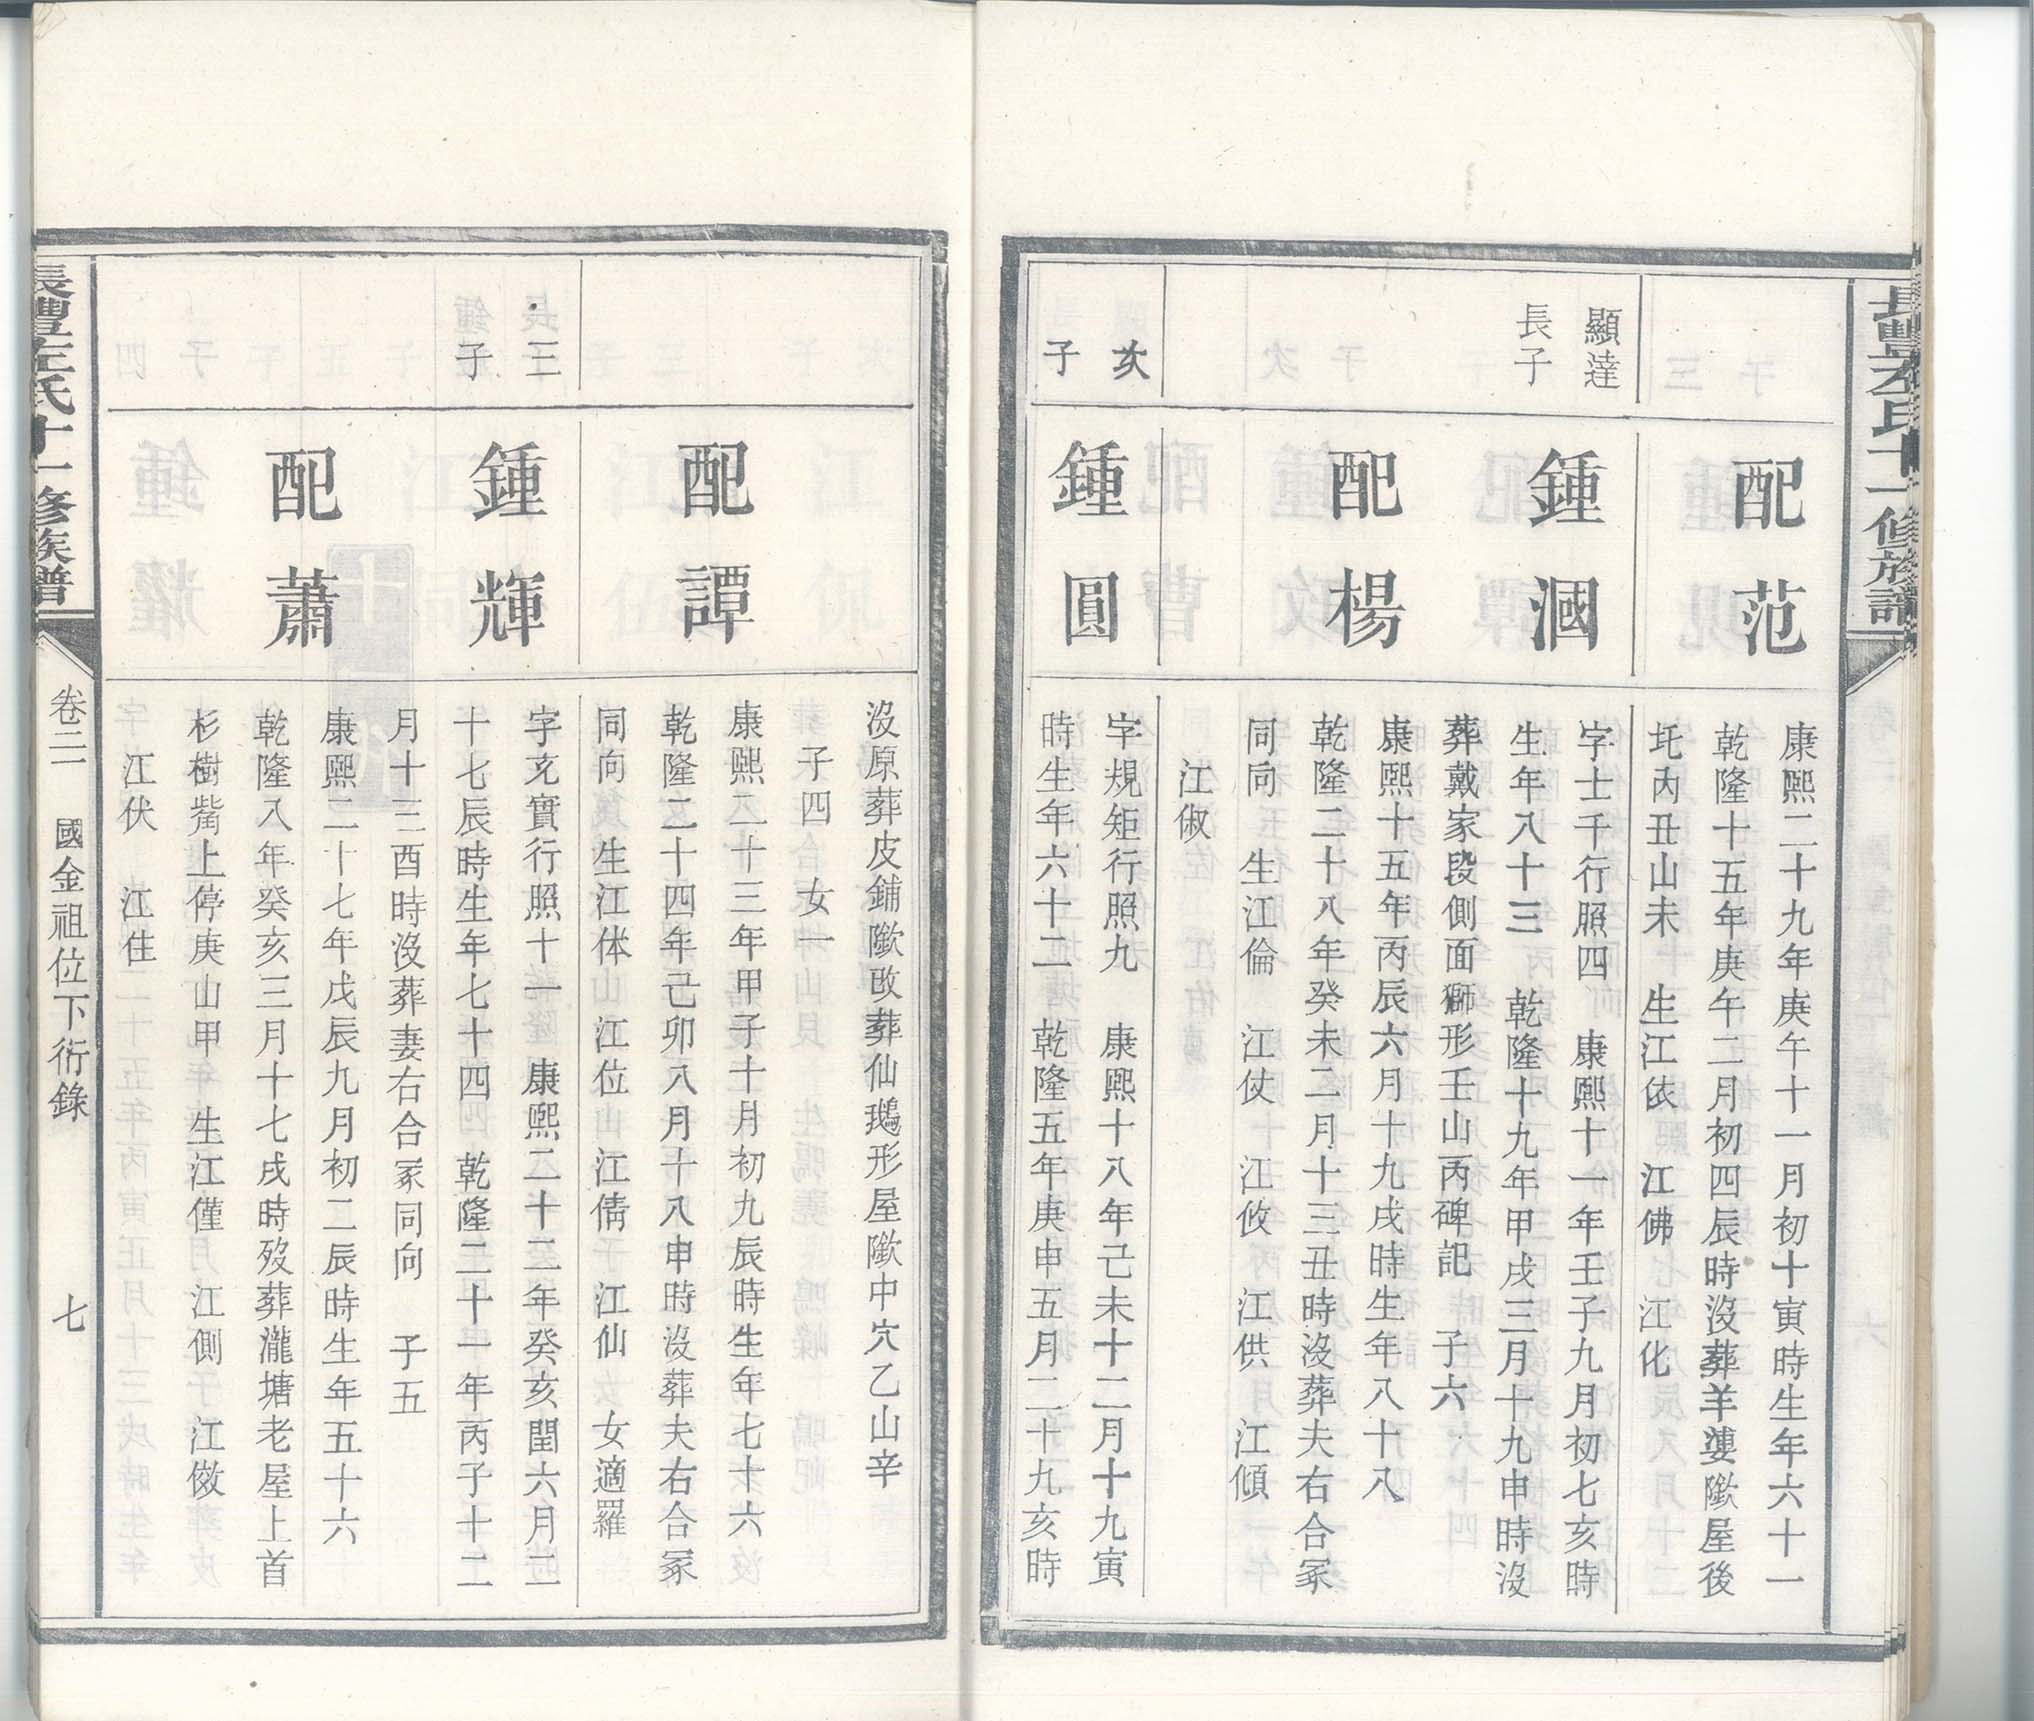 長豐左氏十一修族譜
配范
康熙二十九年庚午十一月初十寅時生年六十一
乾隆十五年庚午二月初四辰時沒葬羊婆𡼏屋後
圫內丑山未　生江依　江佛　江化
顯達
長子
鍾溷
字士千行照四　康熙十一年壬子九月初七亥時
生年八十三　乾隆十九年甲戌三月十九申時沒
葬戴家段側面獅形壬山丙碑記　子六
配楊
康熙十五年丙辰六月十九戌時生年八十八
乾隆二十八年癸未二月十三丑時沒葬夫右合冢
同向　生江倫　江仗　江攸　江供　江傾
江俶
次
子
鍾圓
字規矩行照九　康熙十八年己未十二月十九寅
時生年六十二　乾隆五年庚申五月二十九亥時
沒原葬皮鋪改葬仙鵝形屋中穴乙山辛
子四　女一
配譚
康熙二十三年甲子十月初九辰時生年七十六
乾隆二十四年己卯八月十八申時沒葬夫右合冢
同向　生江体　江位　江倩　江仙　女適羅
長三
鍾子
鍾輝
字充實行照十一　康熙二十二年癸亥閏六月二
十七辰時生年七十四　乾隆二十一年丙子十二
月十三酉時沒葬妻右合冢同向　子五
配蕭
康熙二十七年戊辰九月初二辰時生年五十六
乾隆八年癸亥三月十七戌時歿葬瀧塘老屋上首
杉樹嘴上停庚山甲　生江僅　江側　江傚
江伏　江住
長豐左氏十一修族譜
卷二　國金祖位下衍錄　七